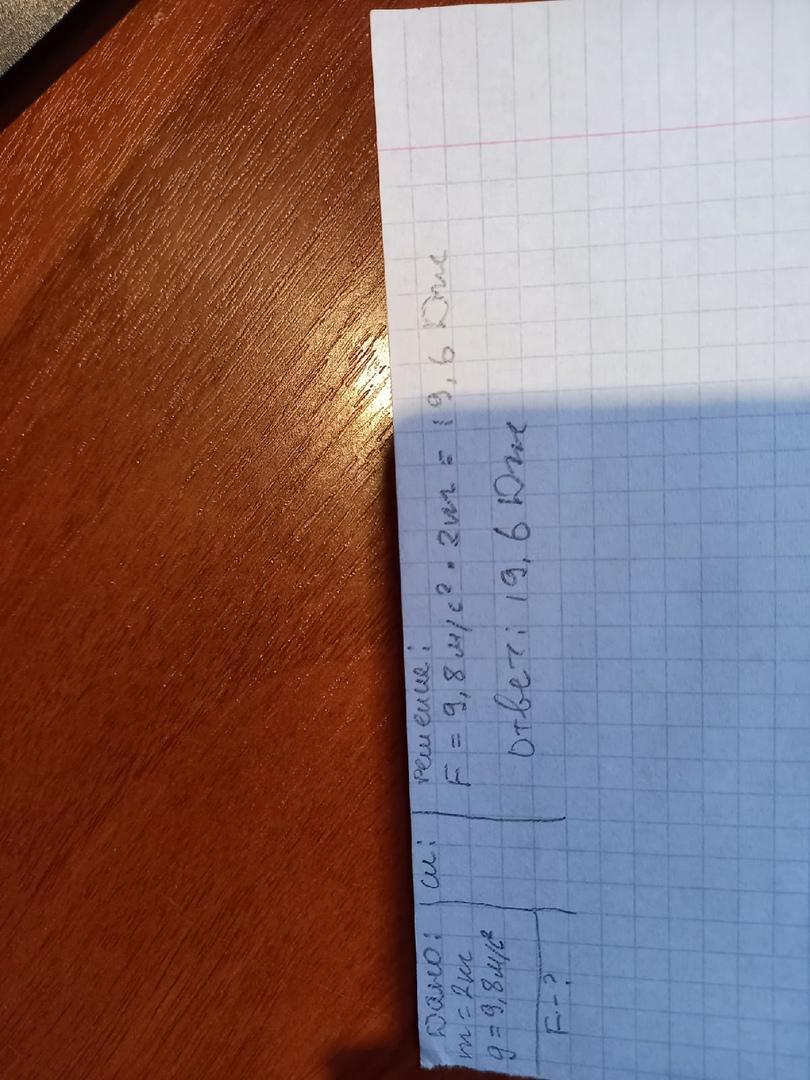 Дано:
m = 2кг
g = 9,8м/с²
F - ?
си:
решение:
F = 9,8 м/с² • 2кг = 19,6 Дж
Ответ: 19,6 Дж